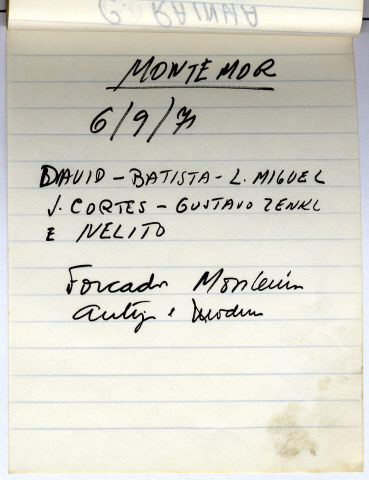 G. RAINHA
MONTEMOR
6/9/71
DAVID - BATISTA - L. MIGUEL
J. CORTES - GUSTAVO ZENKL
E NELITO
Forcados
e